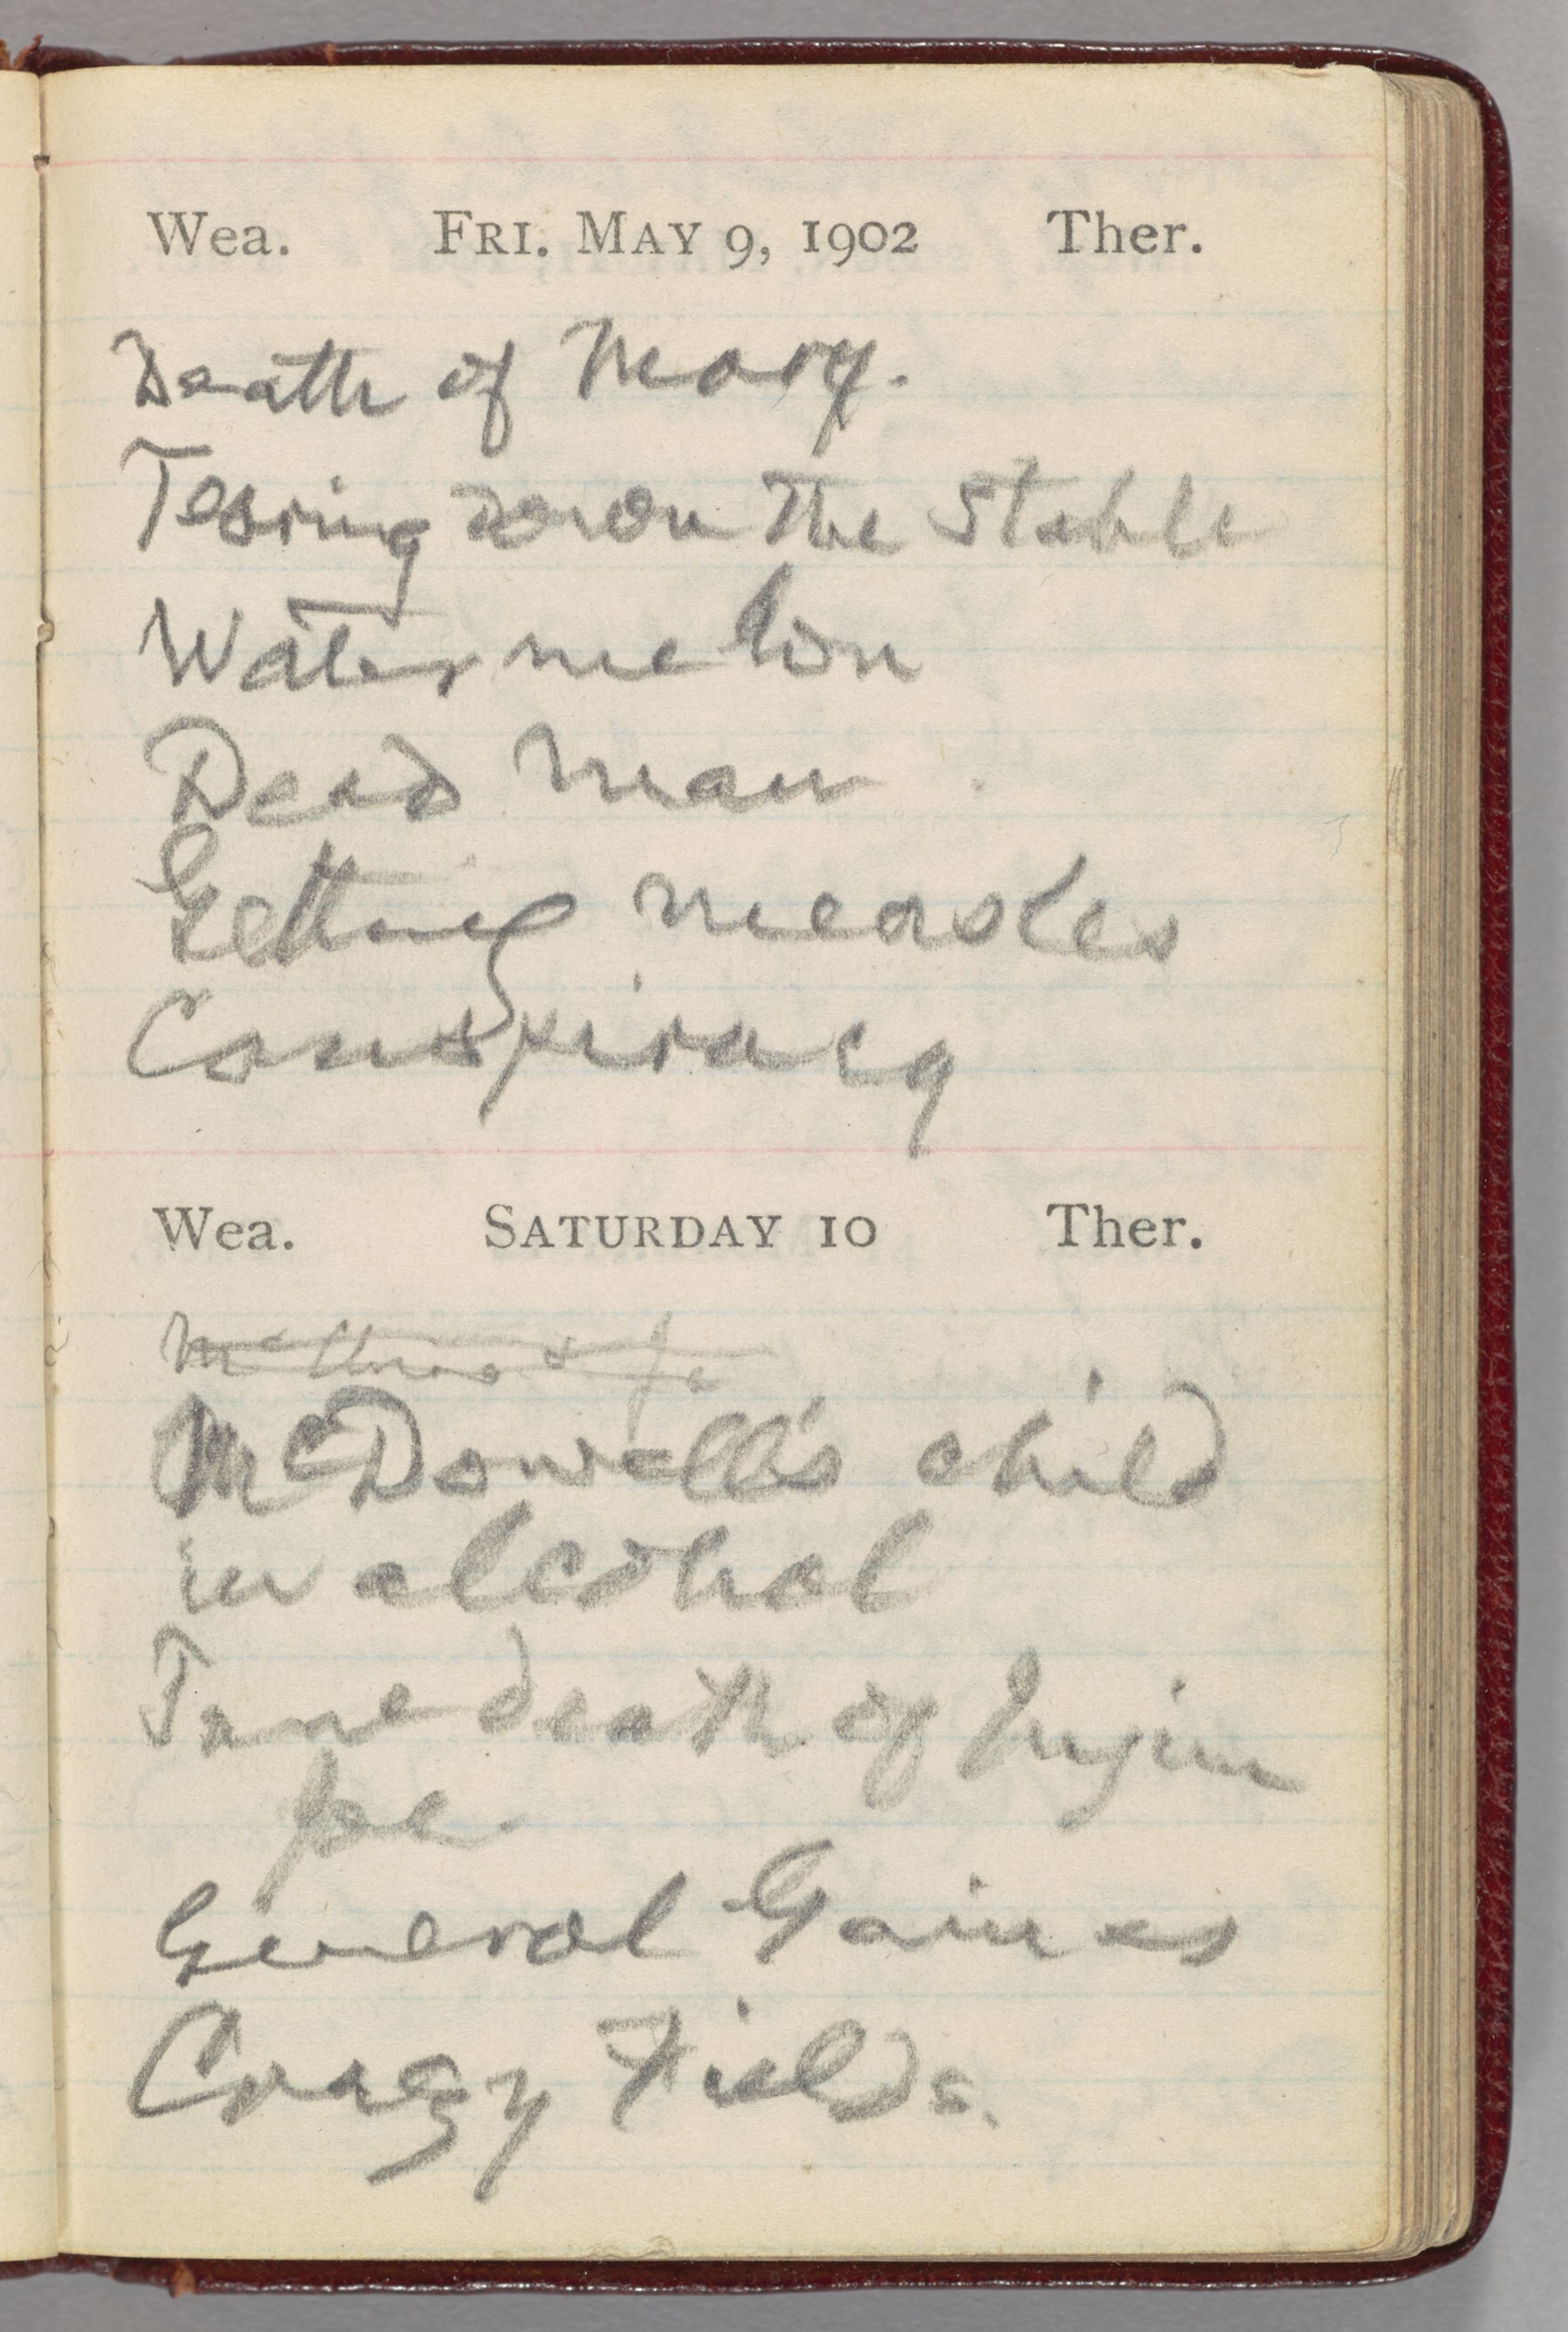 Wea. FRI. MAY 9, 1902 Ther.
Death of Mary.
Tearing down the Stable
Watermelon
Dead man
Getting measles
Conspiracy
Wea. SATURDAY 10 Ther.
McDowell's child
in alcohol
True death of Injun
Joe.
General Gaines
Crazy Fields.